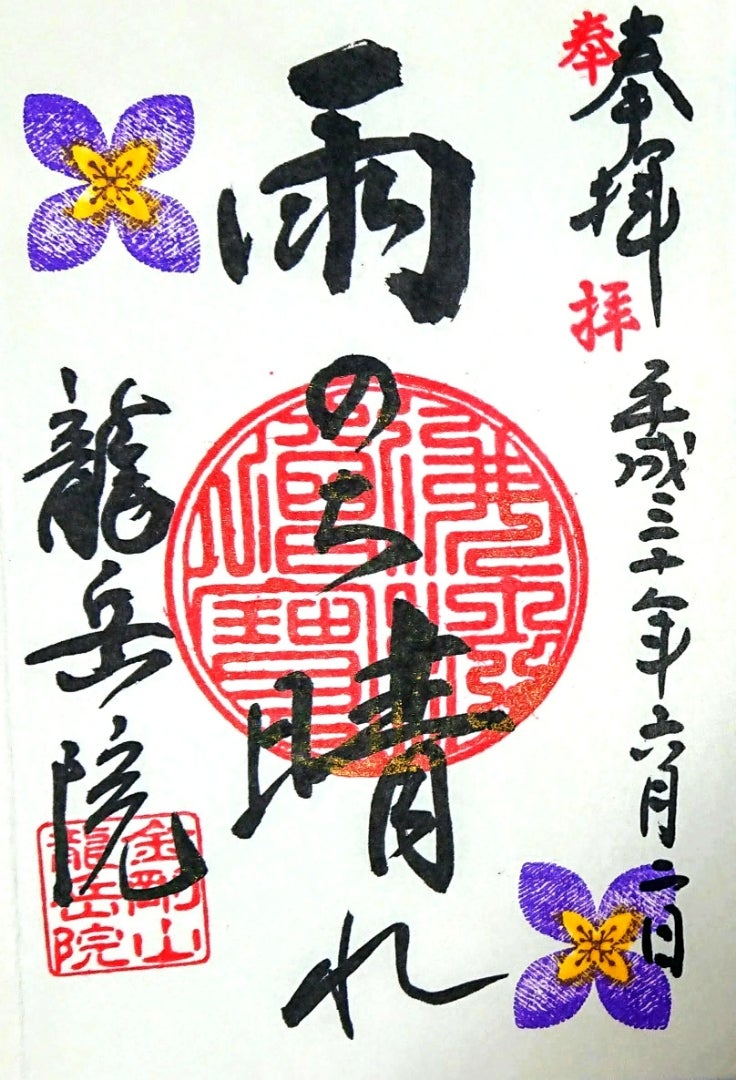 奉拝
奉
拝
平成三十年六月二日
雨のち晴れ
佛法僧寶
龍岳院
金剛山
龍岳院